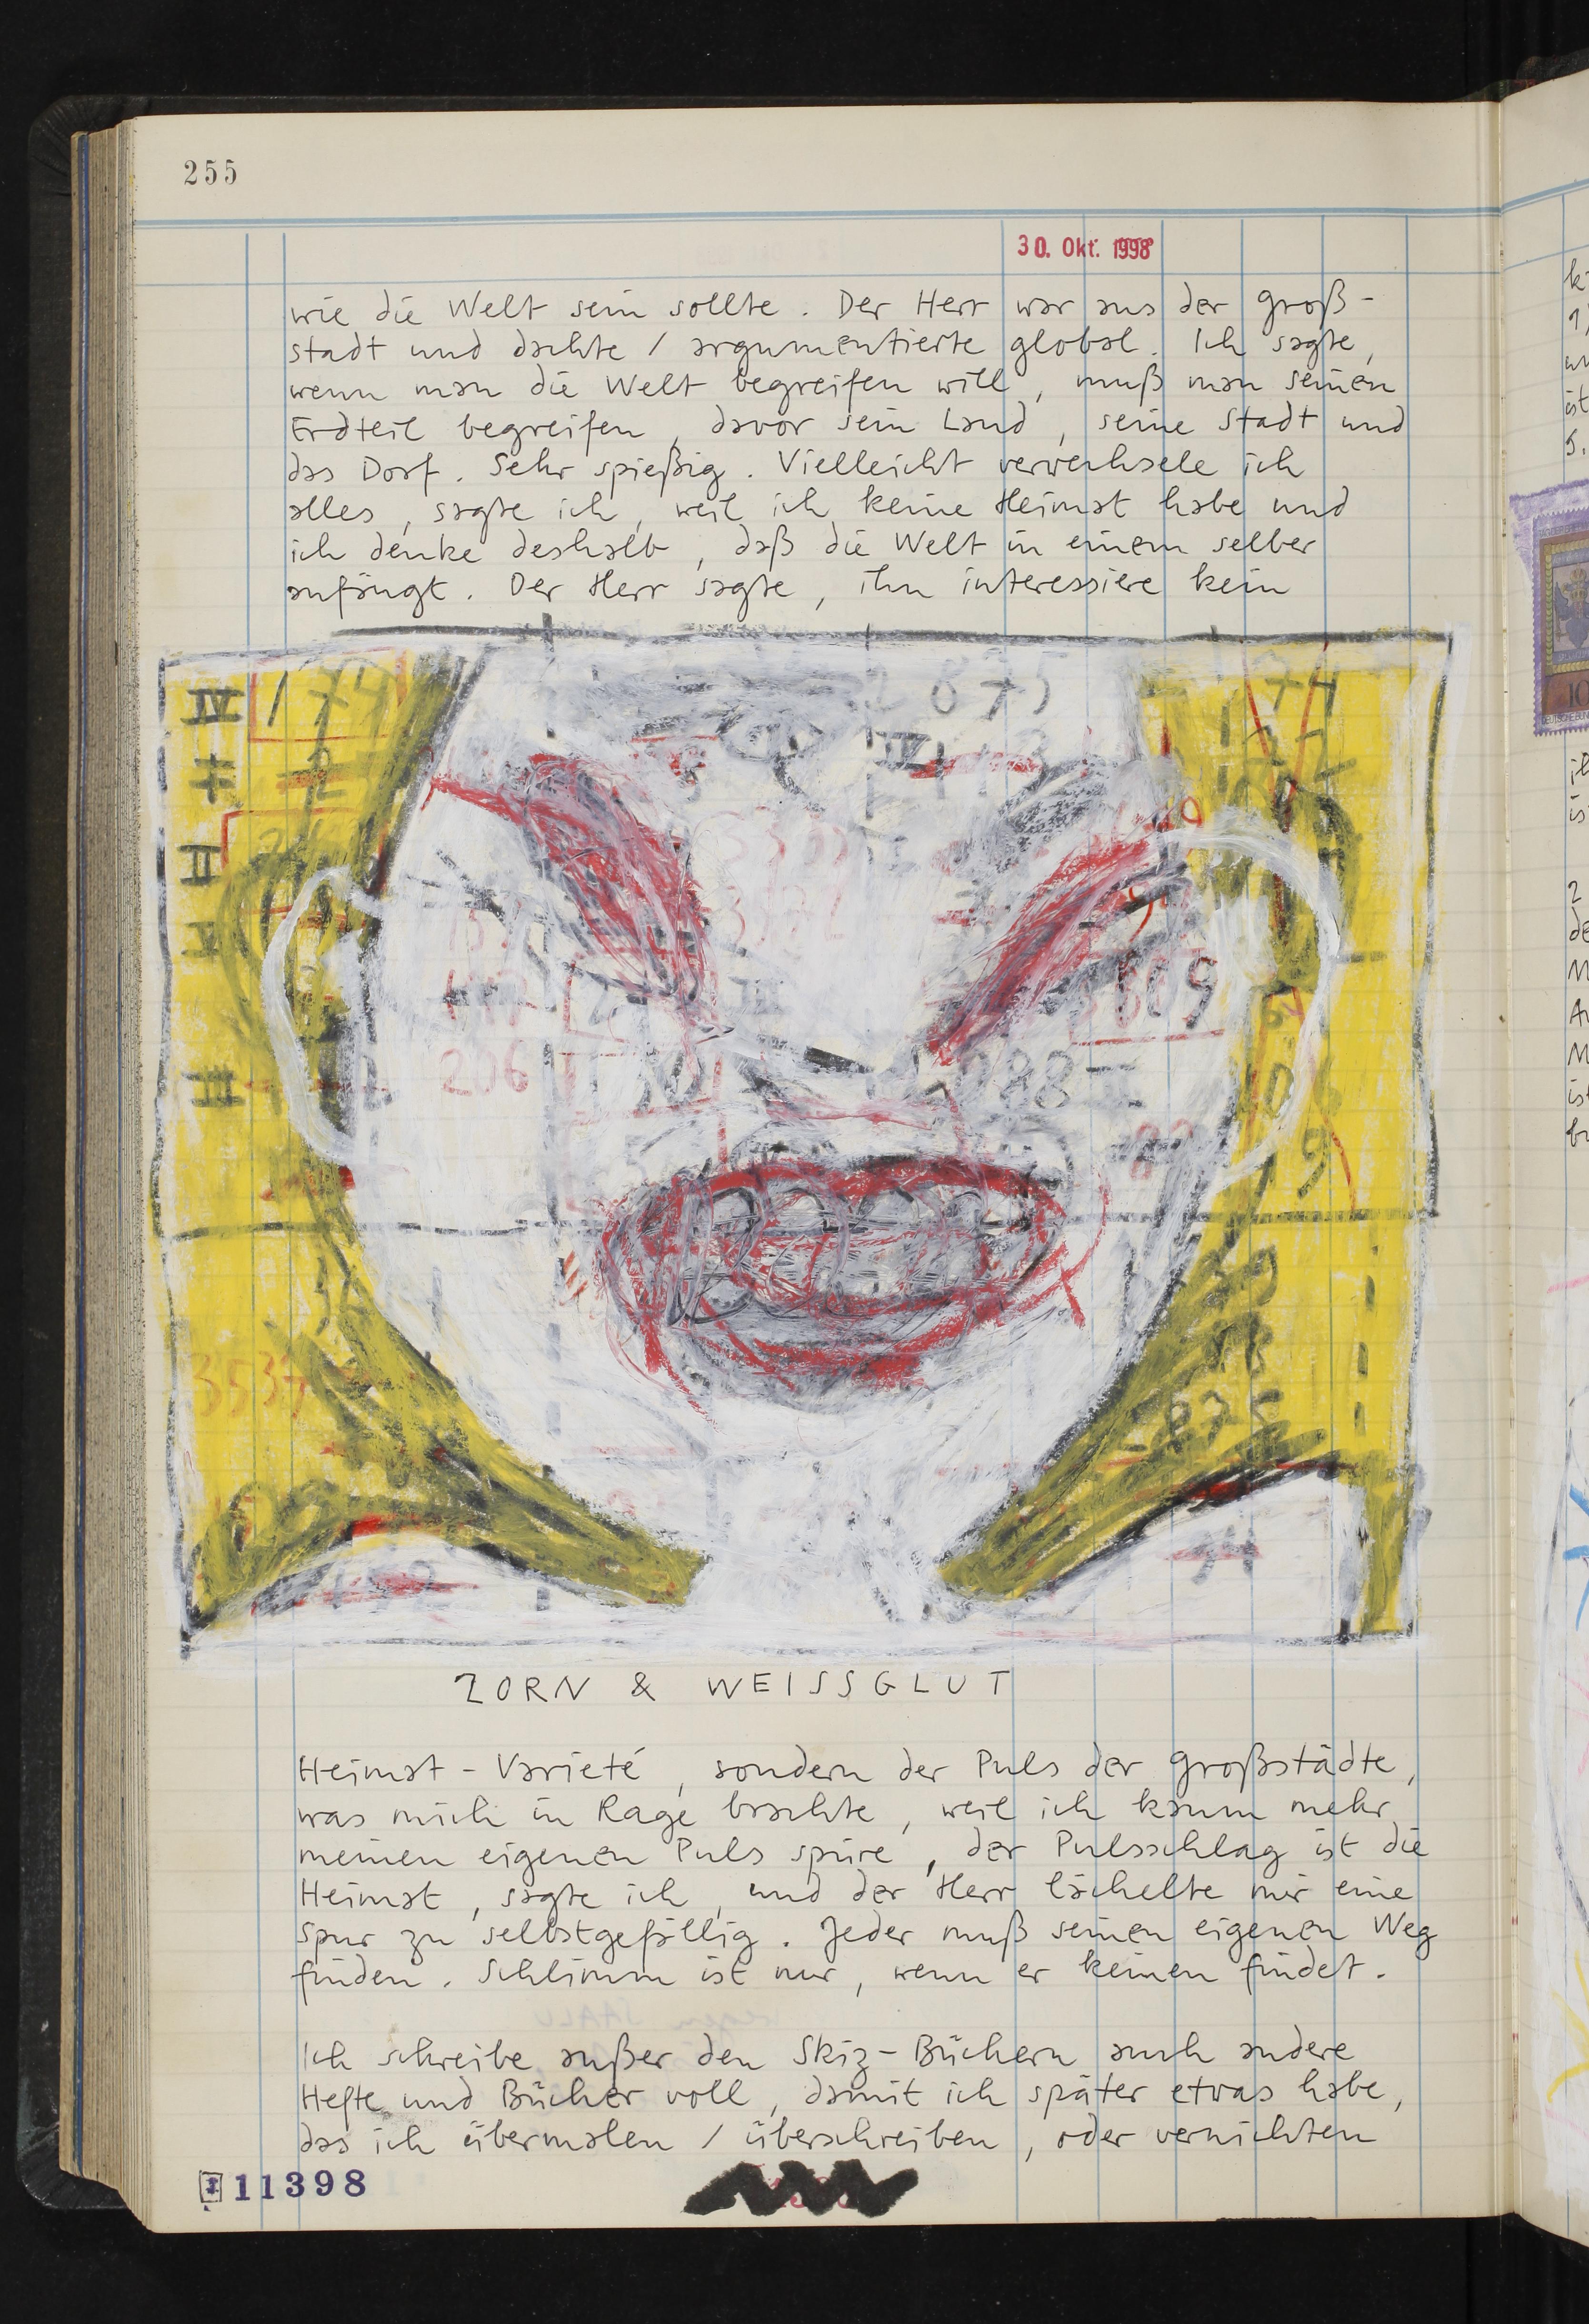 255
30. Okt. 1998
wie die Welt sein sollte. Der Herr war aus der Groß-
stadt und dachte / argumentierte global. Ich sagte,
wenn man die Welt begreifen will, muß man seinen
Erdteil begreifen, davor sein Land, seine Stadt und
das Dorf. Sehr spießig. Vielleicht verwechsele ich
alles, sagte ich, weil ich keine Heimat habe und
ich denke deshalb, daß die Welt in einem selber
anfängt. Der Herr sagte, ihn interessiere kein
IV 174 2875 174
II
3009
206 988
106
19
36
353
875
94
ZORN & WEISSGLUT
Heimat-Varieté, sondern der Puls der Großstädte,
was mich in Rage brachte, weil ich kaum mehr
meinen eigenen Puls spüre, der Pulsschlag ist die
Heimat, sagte ich, und der Herr lächelte mir eine
Spur zu selbstgefällig. Jeder muß seinen eigenen Weg
finden. Schlimm ist nur, wenn er keinen findet.
Ich schreibe außer den Skiz-Büchern auch andere
Hefte und Bücher voll, damit ich später etwas habe,
das ich übermalen / überschreiben, oder vernichten
11398